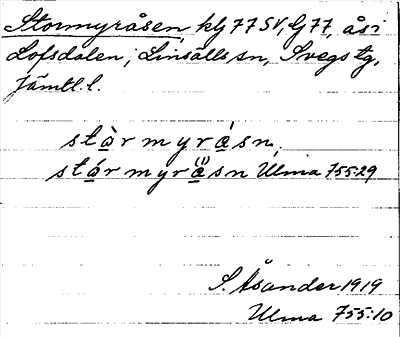 Stormyråsen, klg 77 SV, G 77, ås i
Lofsdalen, Linsälls sn, Svegs tg,
Jämtl. l.
stàrmyrásn,
stármyråsn Ulma 755:29
S. Åsander 1919
Ulma 755:10